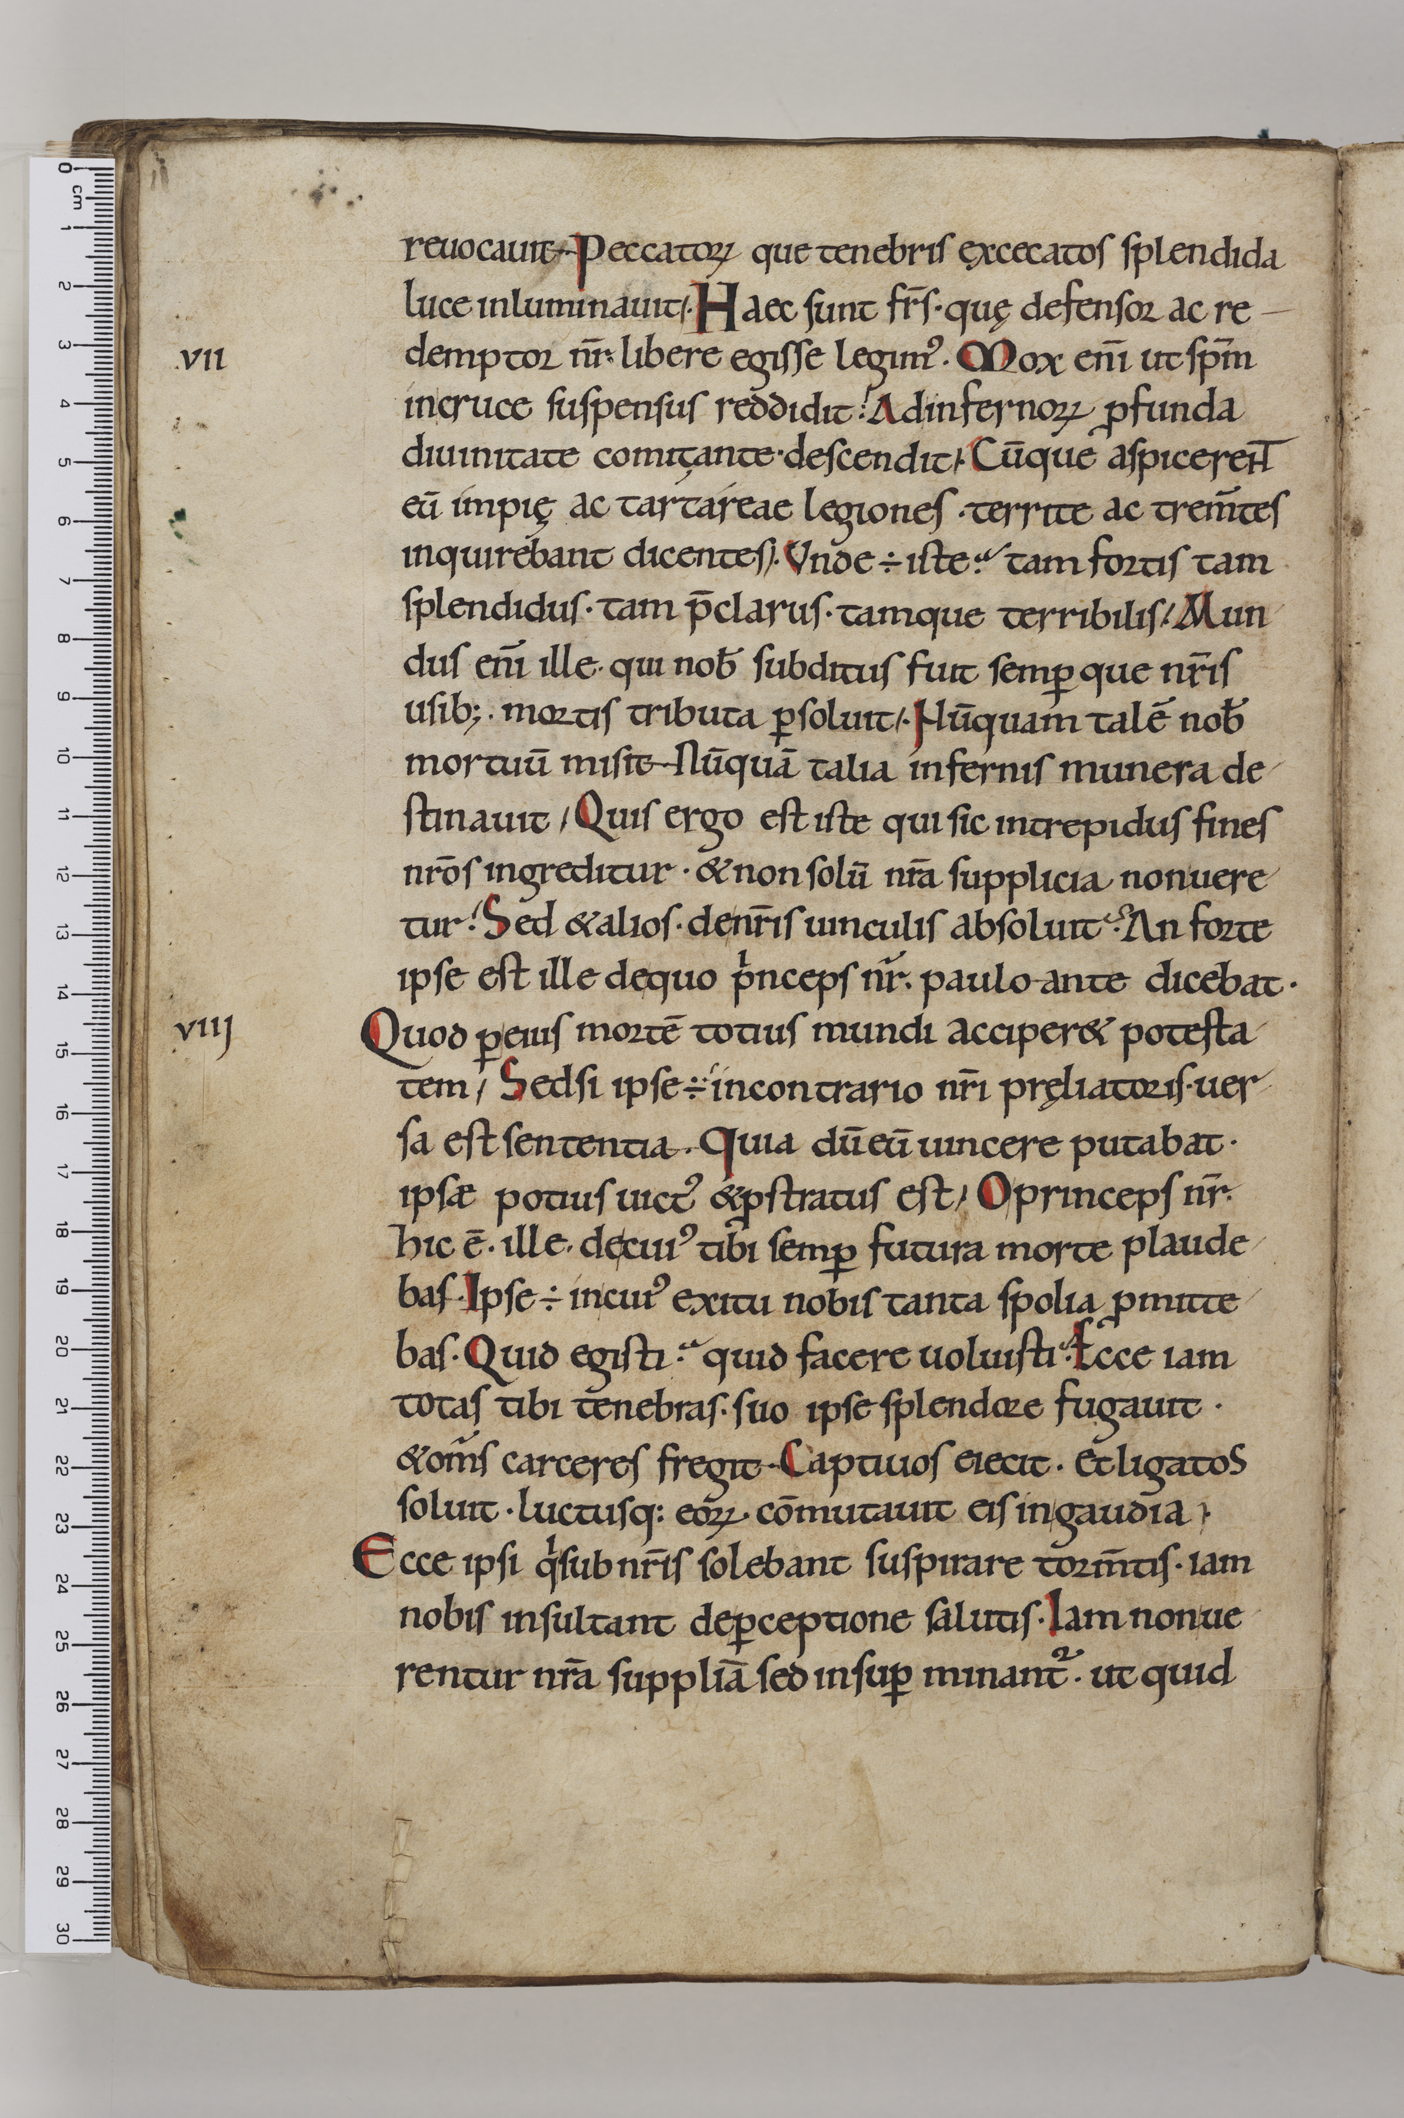 reuocauit. Peccatoꝝ que tenebris ęxcecatos splendida
luce inluminauit. Haec sunt fr̄s. quę defensor ac re
vii
demptor nr̄. libere egisse legim᾽. Mox eni̅ ut sp̅m
incruce suspensus reddidit. Adinfernoꝝ ꝓfunda
diuinitate comitante. descendit. Cu̅que aspicerent
eu̅ impię ac tartareae legiones. territe ac trem̅tes
inquirebant dicentes. Unde ÷ iste? tam fortis tam
splendidus. tam p̅clarus. tamque terribilis. Mun
dus eni̅ ille. qui nob̅ subditus fuit semꝑque nr̅is
usib;. mortis tributa ꝑsoluit. Nu̅quam tale̅ nob̅
mortuu̅ misit. Nu̅qua̅ talia infernis munera de
stinauit. Quis ergo est iste qui sic intrepidus fines
nro̅s ingreditur. & non solu̅ nr̅a supplicia nonuere
tur. Sed & alios. denr̅is uinculis absoluit? An forte
ipse est ille dequo pͥnceps nr̅. paulo ante dicebat.
viij
Quod ꝑeius morte̅ totius mundi acciper& potesta
tem. Sedsi ipse ÷ incontrario nr̅i pręliatoris. uer
sa est sententia. Quia du̅ eu̅ uincere putabat.
ipsæ potius uict᾽ & ꝓstratus est. O princeps nr̅.
hic e̅. ille. decui᾽ tibi semꝑ futura morte plaude
bas. Ipse ÷ incui᾽ exitu nobis tanta spolia ꝓmitte
bas. Quid egisti? quid facere uoluisti? Ecce iam
totas tibi tenebras. suo ipse splendore fugauit.
& om̅s carceres fregit. Captiuos eiecit. et ligatos
soluit. luctusq: eoꝝ. co̅mutauit eis ingaudia.
Ecce ipsi qͥ sub nr̅is solebant suspirare torm̅tis. iam
nobis insultant deꝑceptione salutis. Iam nonue
rentur nr̅a supplia̅ sed insuꝑ minant᷑. ut quid